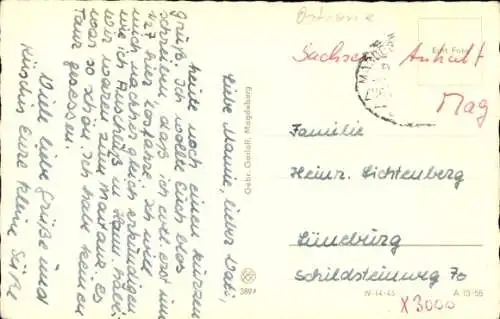 Liebe Mamie, lieber Vati,
heute noch einen kurzen
Gruß. Ich wollte Euch bloß
schreiben, daß ich evtl. erst um
4²⁷ hier losfahre. Ich will
mich nachher gleich erkundigen
wie ich Anschluß in Hann. habe.
Wir waren zum Maitanz. Es
war so schön. Ich habe keinen
Tanz gesessen.
Viele liebe Grüße und
Küsschen Eure kleine Süße
Gebr. Garloff, Magdeburg
3894
Ostzone
Sachsen Anhalt
Mag
Echt Foto
Familie
Heinz Lichtenberg
Lüneburg
Schildsteinweg 70
IV-14-45 A 13/56
X 3000